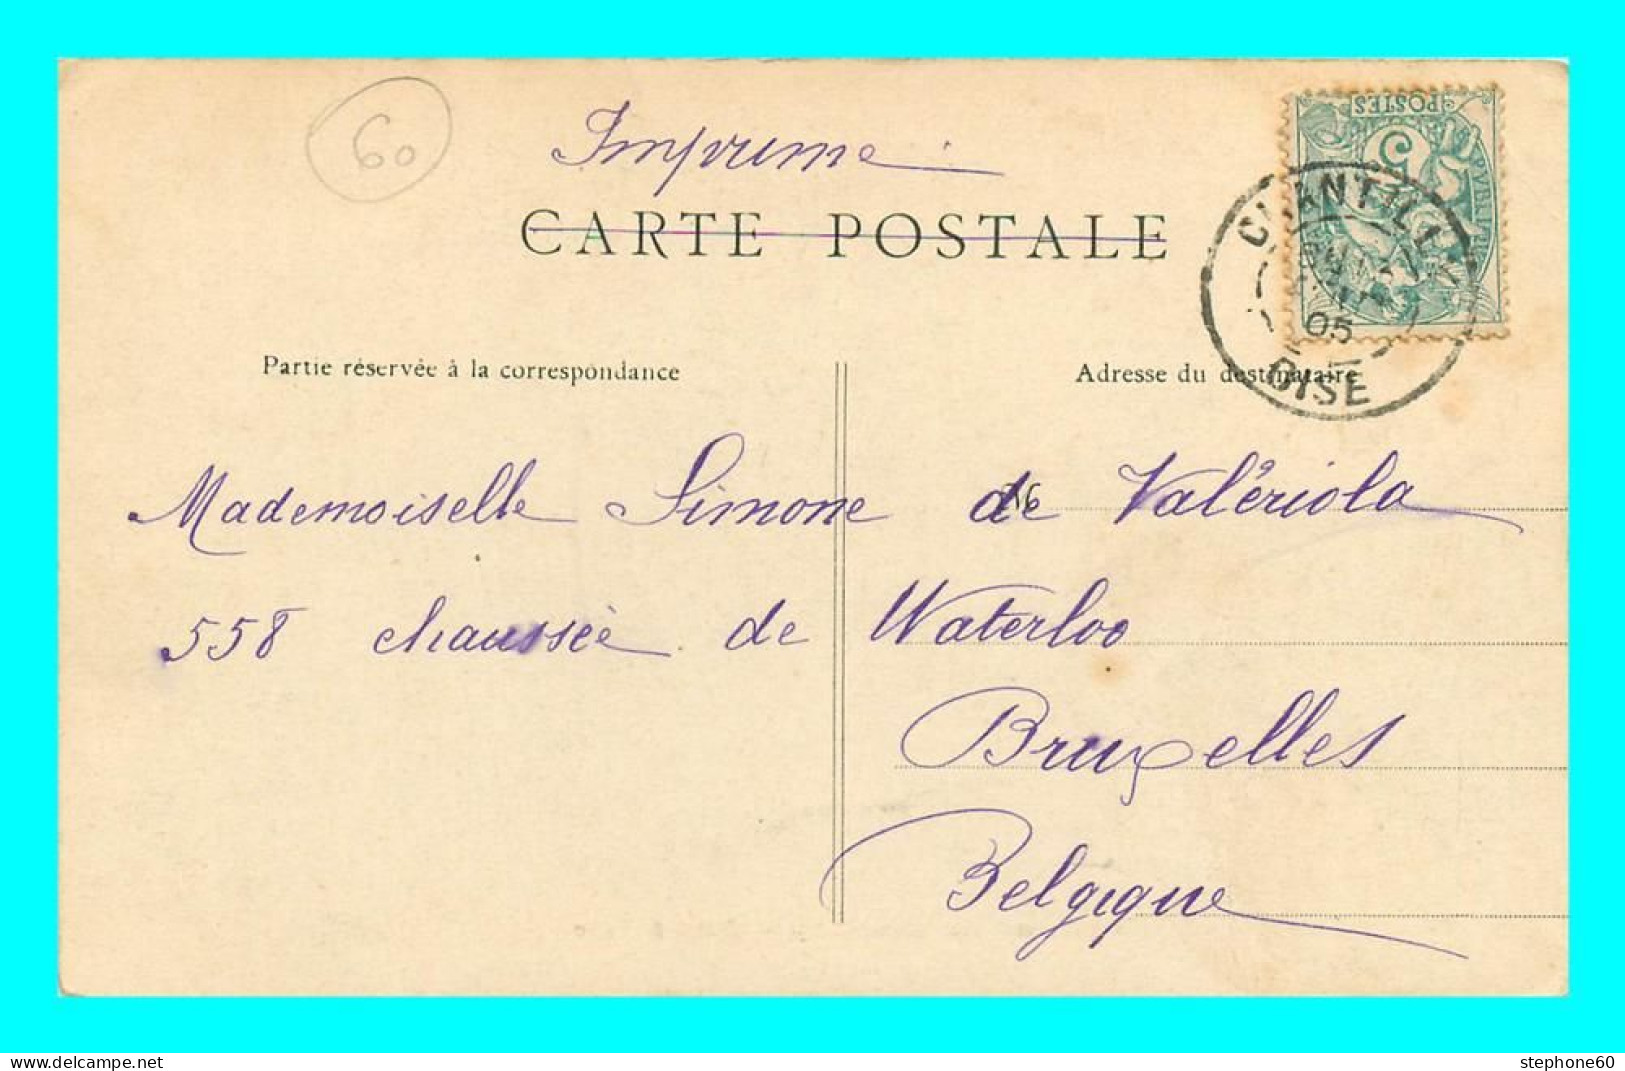 60
Imprimé
CARTE POSTALE
POSTES
5
CHANTILLY
05
OISE
Partie réservée à la correspondance
Adresse du destinataire
Mademoiselle Simone de Valériola
558 chaussée de Waterloo
Bruxelles
Belgique
www.delcampe.net
stephone60